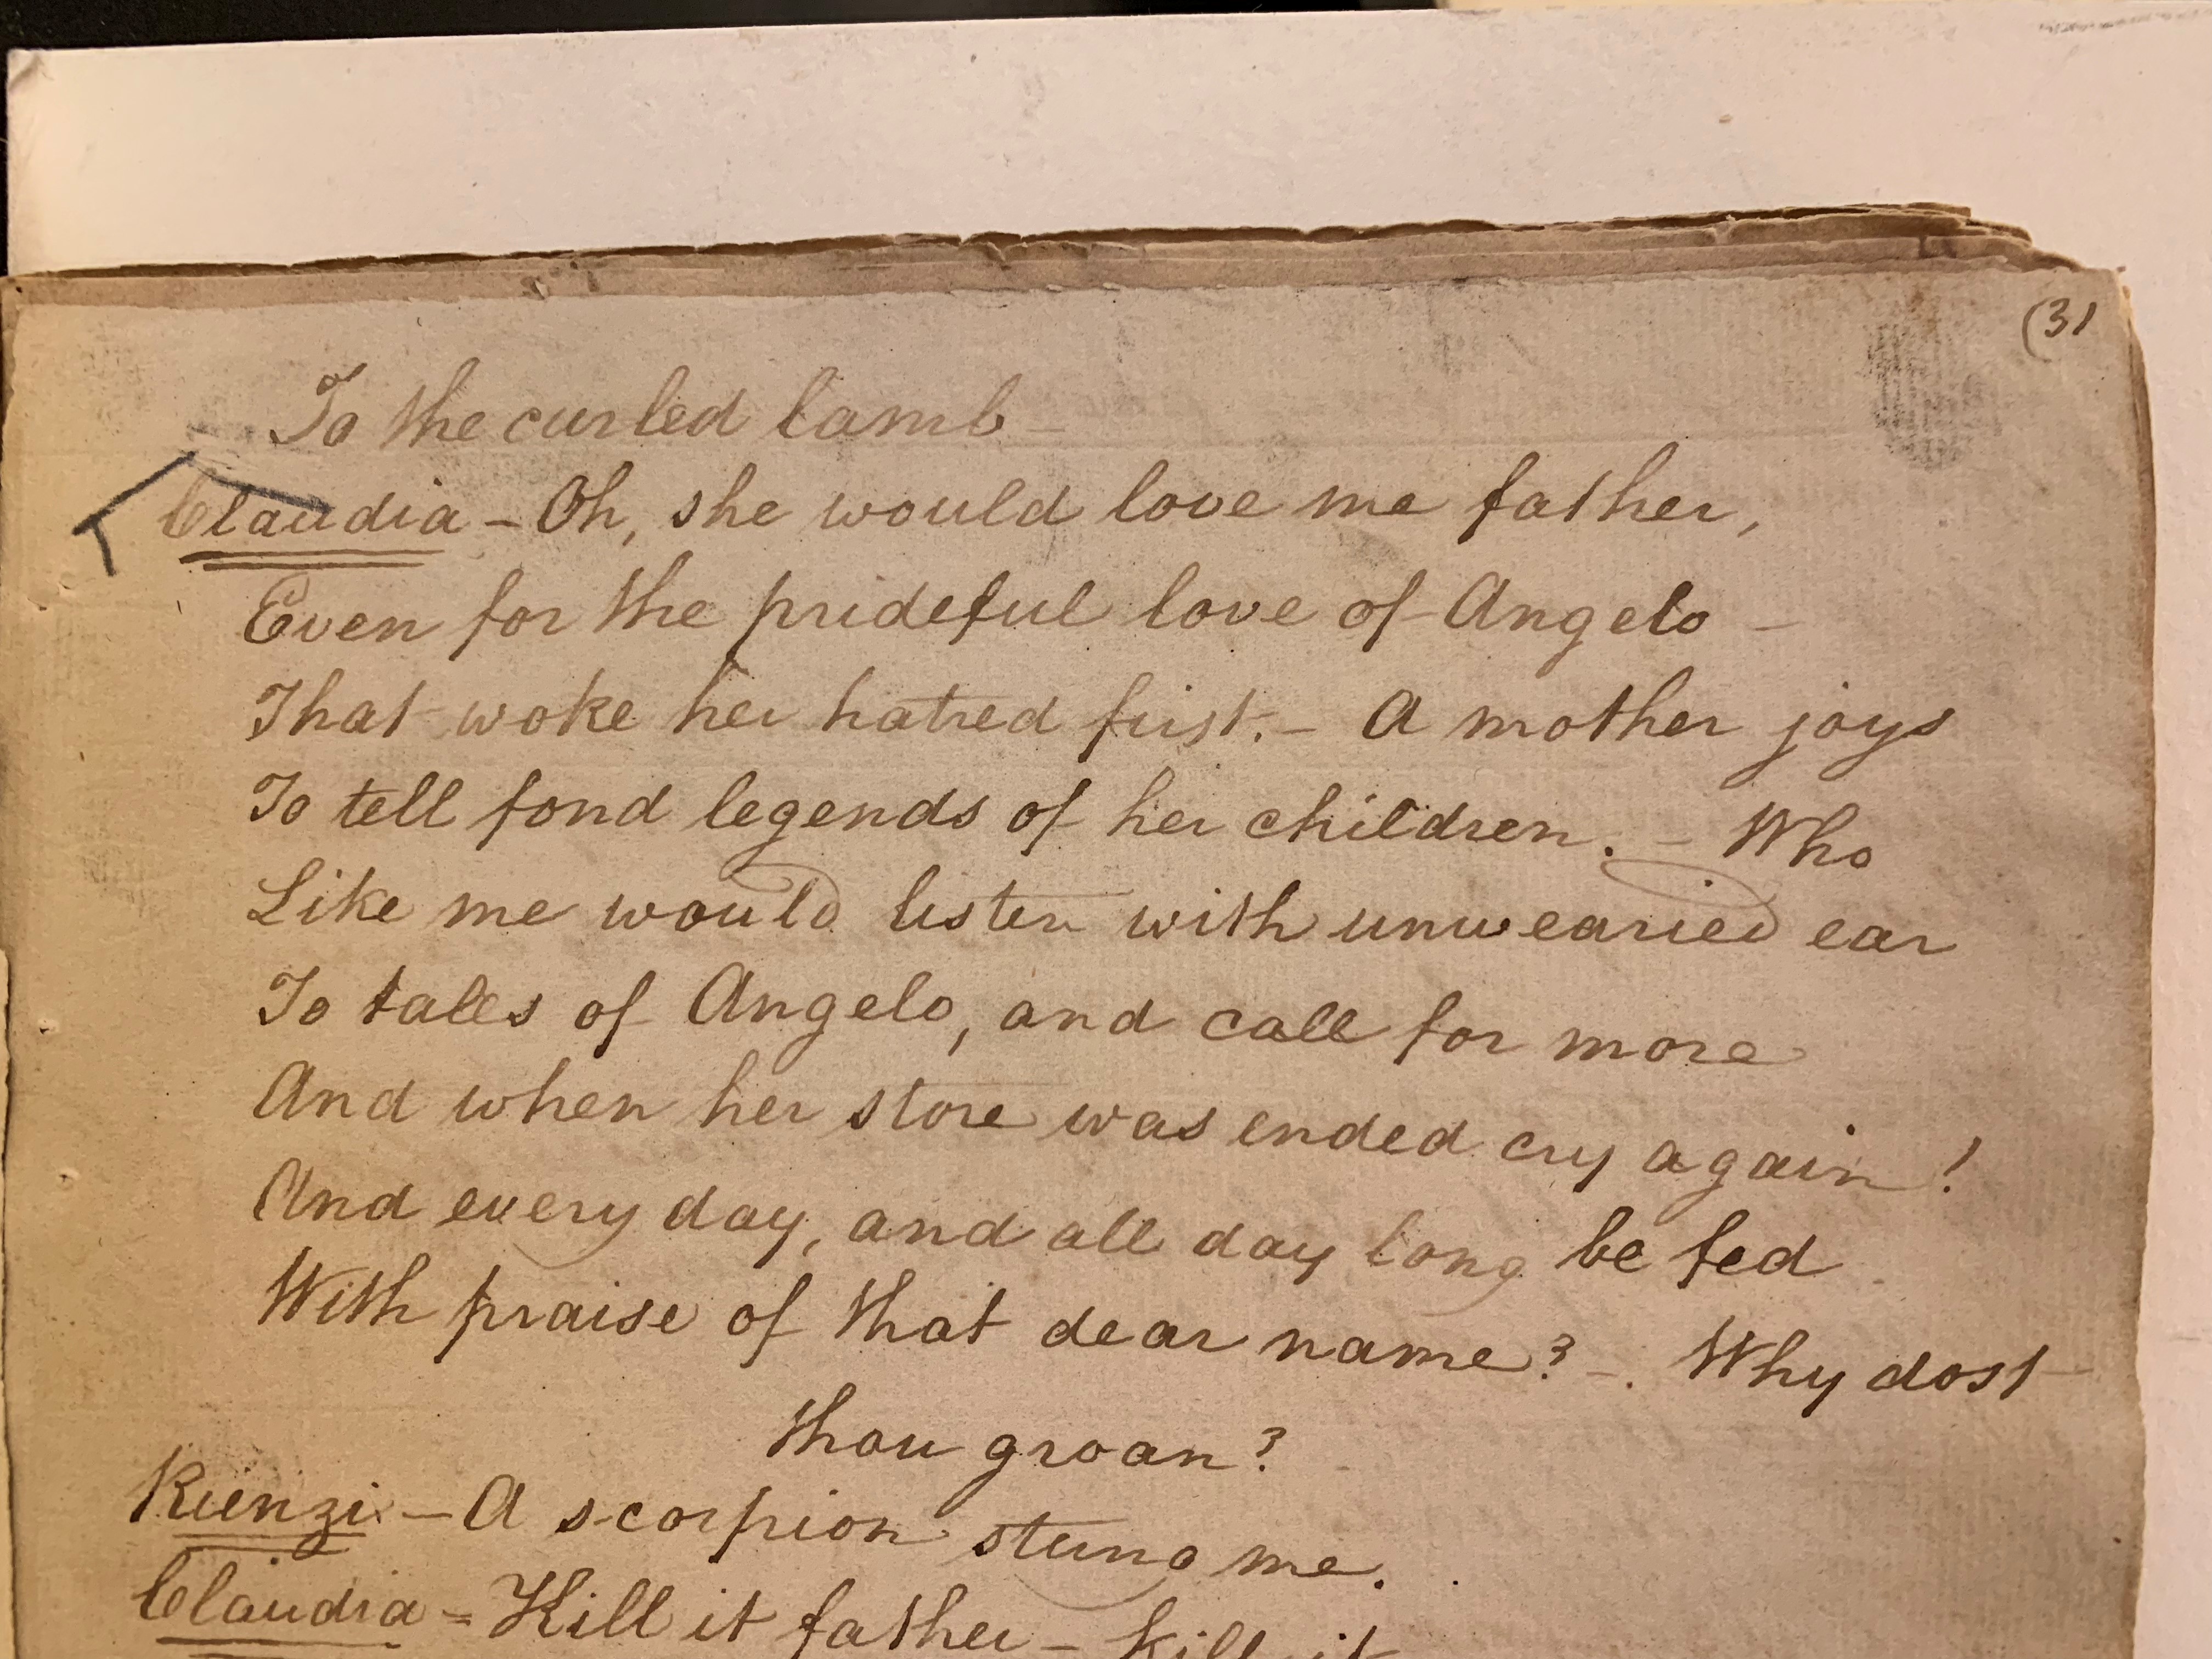 (31
To the curled lamb -
Claudia - Oh, she would love me father,
Even for the prideful love of Angelo -
That woke her hatred first. - A mother joys
To tell fond legends of her children. - Who
Like me would listen with unwearied ear
To tales of Angelo, and call for more
And when her store was ended cry again!
And every day, and all day long be fed
With praise of that dear name? -. Why dost
thou groan?
Rienzi - A scorpion stung me.
Claudia = Kill it father - kill it